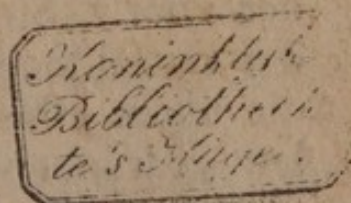 Koninklijk
Bibliotheek
te's Hage.